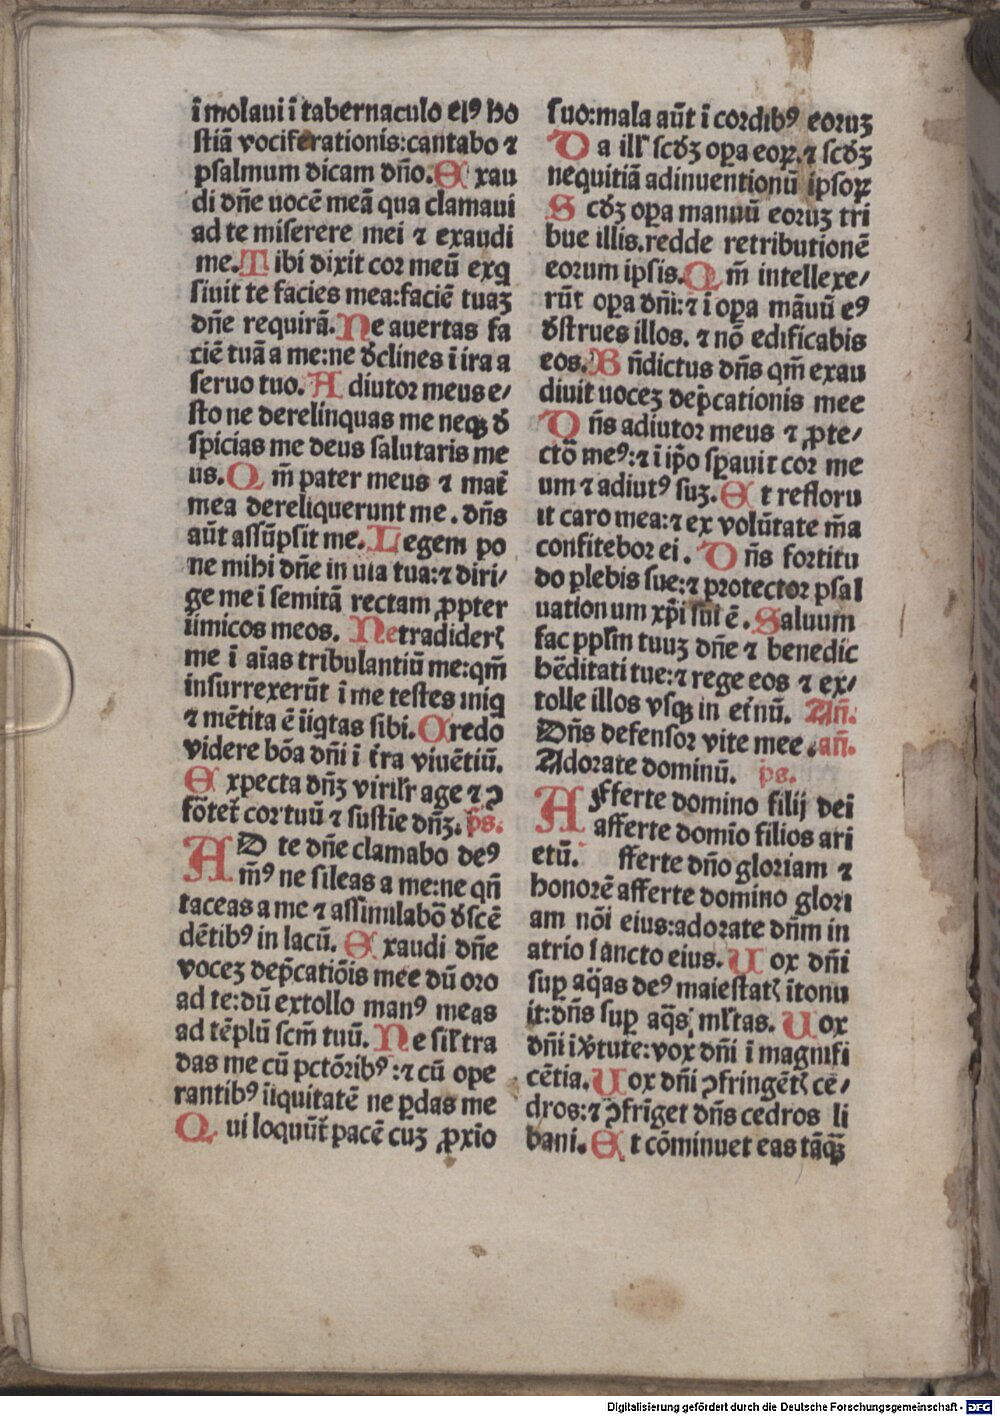 ī molaui ī tabernaculo eiꝰ ho
ſtiā vociferationis:cantabo ⁊
pſalmum dicam dño. Exau
di dñe uocē meā qua clamaui
ad te miſerere mei ⁊ exaudi
me. Tibi dixit cor meū exq
ſiuit te facies mea:faciē tuaꝫ
dñe requirā. Ne auertas fa
ciē tuā a me:ne ꝺ̄clines ī ira a
ſeruo tuo. Adiutor meus e/
ſto ne derelinquas me neqꝫ ꝺ̄
ſpicias me deus ſalutaris me
us. Qm̄ pater meus ⁊ mat̄
mea dereliquerunt me. dñs
aūt aſſūpſit me. Legem po
ne mihi dñe in uia tua:⁊ diri/
ge me ī ſemitā rectam ꝓpter
īimicos meos. Ne tradiderꝭ
me ī aīas tribulantiū me:qm̄
inſurrexerūt ī me teſtes iniq
⁊ mētita ē īiqtas ſibi. Credo
videre bōa dñi ī t̄ra viuētiū.
Expecta dñꝫ virilr̄ age ⁊ ꝯ
fōtet̄ cor tuū ⁊ ſuſtīe dñꝫ. ps̄.
AD te dñe clamabo deꝰ
m̄ꝰ ne ſileas a me:ne qn̄
taceas a me ⁊ aſſimilabō ꝺ̄ſcē
dētibꝰ in lacū. Exaudi dñe
voceꝫ dep̄catiōis mee dū oro
ad te:dū extollo manꝰ meas
ad tēplū ſcm̄ tuū. Ne ſil̄ tra
das me cū pctōribꝰ:⁊ cū ope
rantibꝰ īiquitatē ne ꝑdas me
Qui loquūt̄ pacē cuꝫ ꝓxīo
ſuo:mala aūt ī cordibꝰ eoruꝫ
Da ill̄ ſcꝺ̄ꝫ oꝑa eoꝝ.⁊ ſcꝺ̄ꝫ
nequitiā adinuentionū ipſoꝝ
Scꝺ̄ꝫ oꝑa manuū eoruꝫ tri
bue illis.redde retributionē
eorum ipſis. Qm̄ intellexe/
rūt oꝑa dñi:⁊ ī oꝑa māuū eꝰ
ꝺ̄ſtrues illos. ⁊ nō edificabis
eos. Bn̄dictus dñs qm̄ exau
diuit uoceꝫ dep̄cationis mee
Dñs adiutor meus ⁊ ꝓte/
ctō meꝰ:⁊ ī ip̄o ſꝑauit cor me
um ⁊ adiutꝰ ſuꝫ. Et refloru
it caro mea:⁊ ex volūtate m̄a
confitebor ei. Dñs fortitu
do plebis ſue:⁊ protector pſal
uationum xp̄i ſui ē. Saluum
fac pplm̄ tuuꝫ dñe ⁊ benedic
hēditati tue:⁊ rege eos ⁊ ex/
tolle illos vſqꝫ in et̄nū. Añ.
Dñs defenſor vite mee. añ.
Adorate dominū. ps̄.
AFferte domino filij dei
afferte domīo filios ari
etū. fferte dño gloriam ⁊
honorē afferte domino glori
am nōi eius:adorate dñm in
atrio ſancto eius. Uox dñi
ſuꝑ aq̄as deꝰ maieſtatꝭ ītonu
it:dñs ſuꝑ aq̄s ml̄tas. Uox
dñi ī v̄tute:vox dñi ī magnifi
cētia. Uox dñi ꝯfringētꝭ ce/
dros:⁊ ꝯfrīget dñs cedros li
bani. Et cōminuet eas tāꝙꝫ
Digitalisierung gefördert durch die Deutsche Forschungsgemeinschaft - DFG